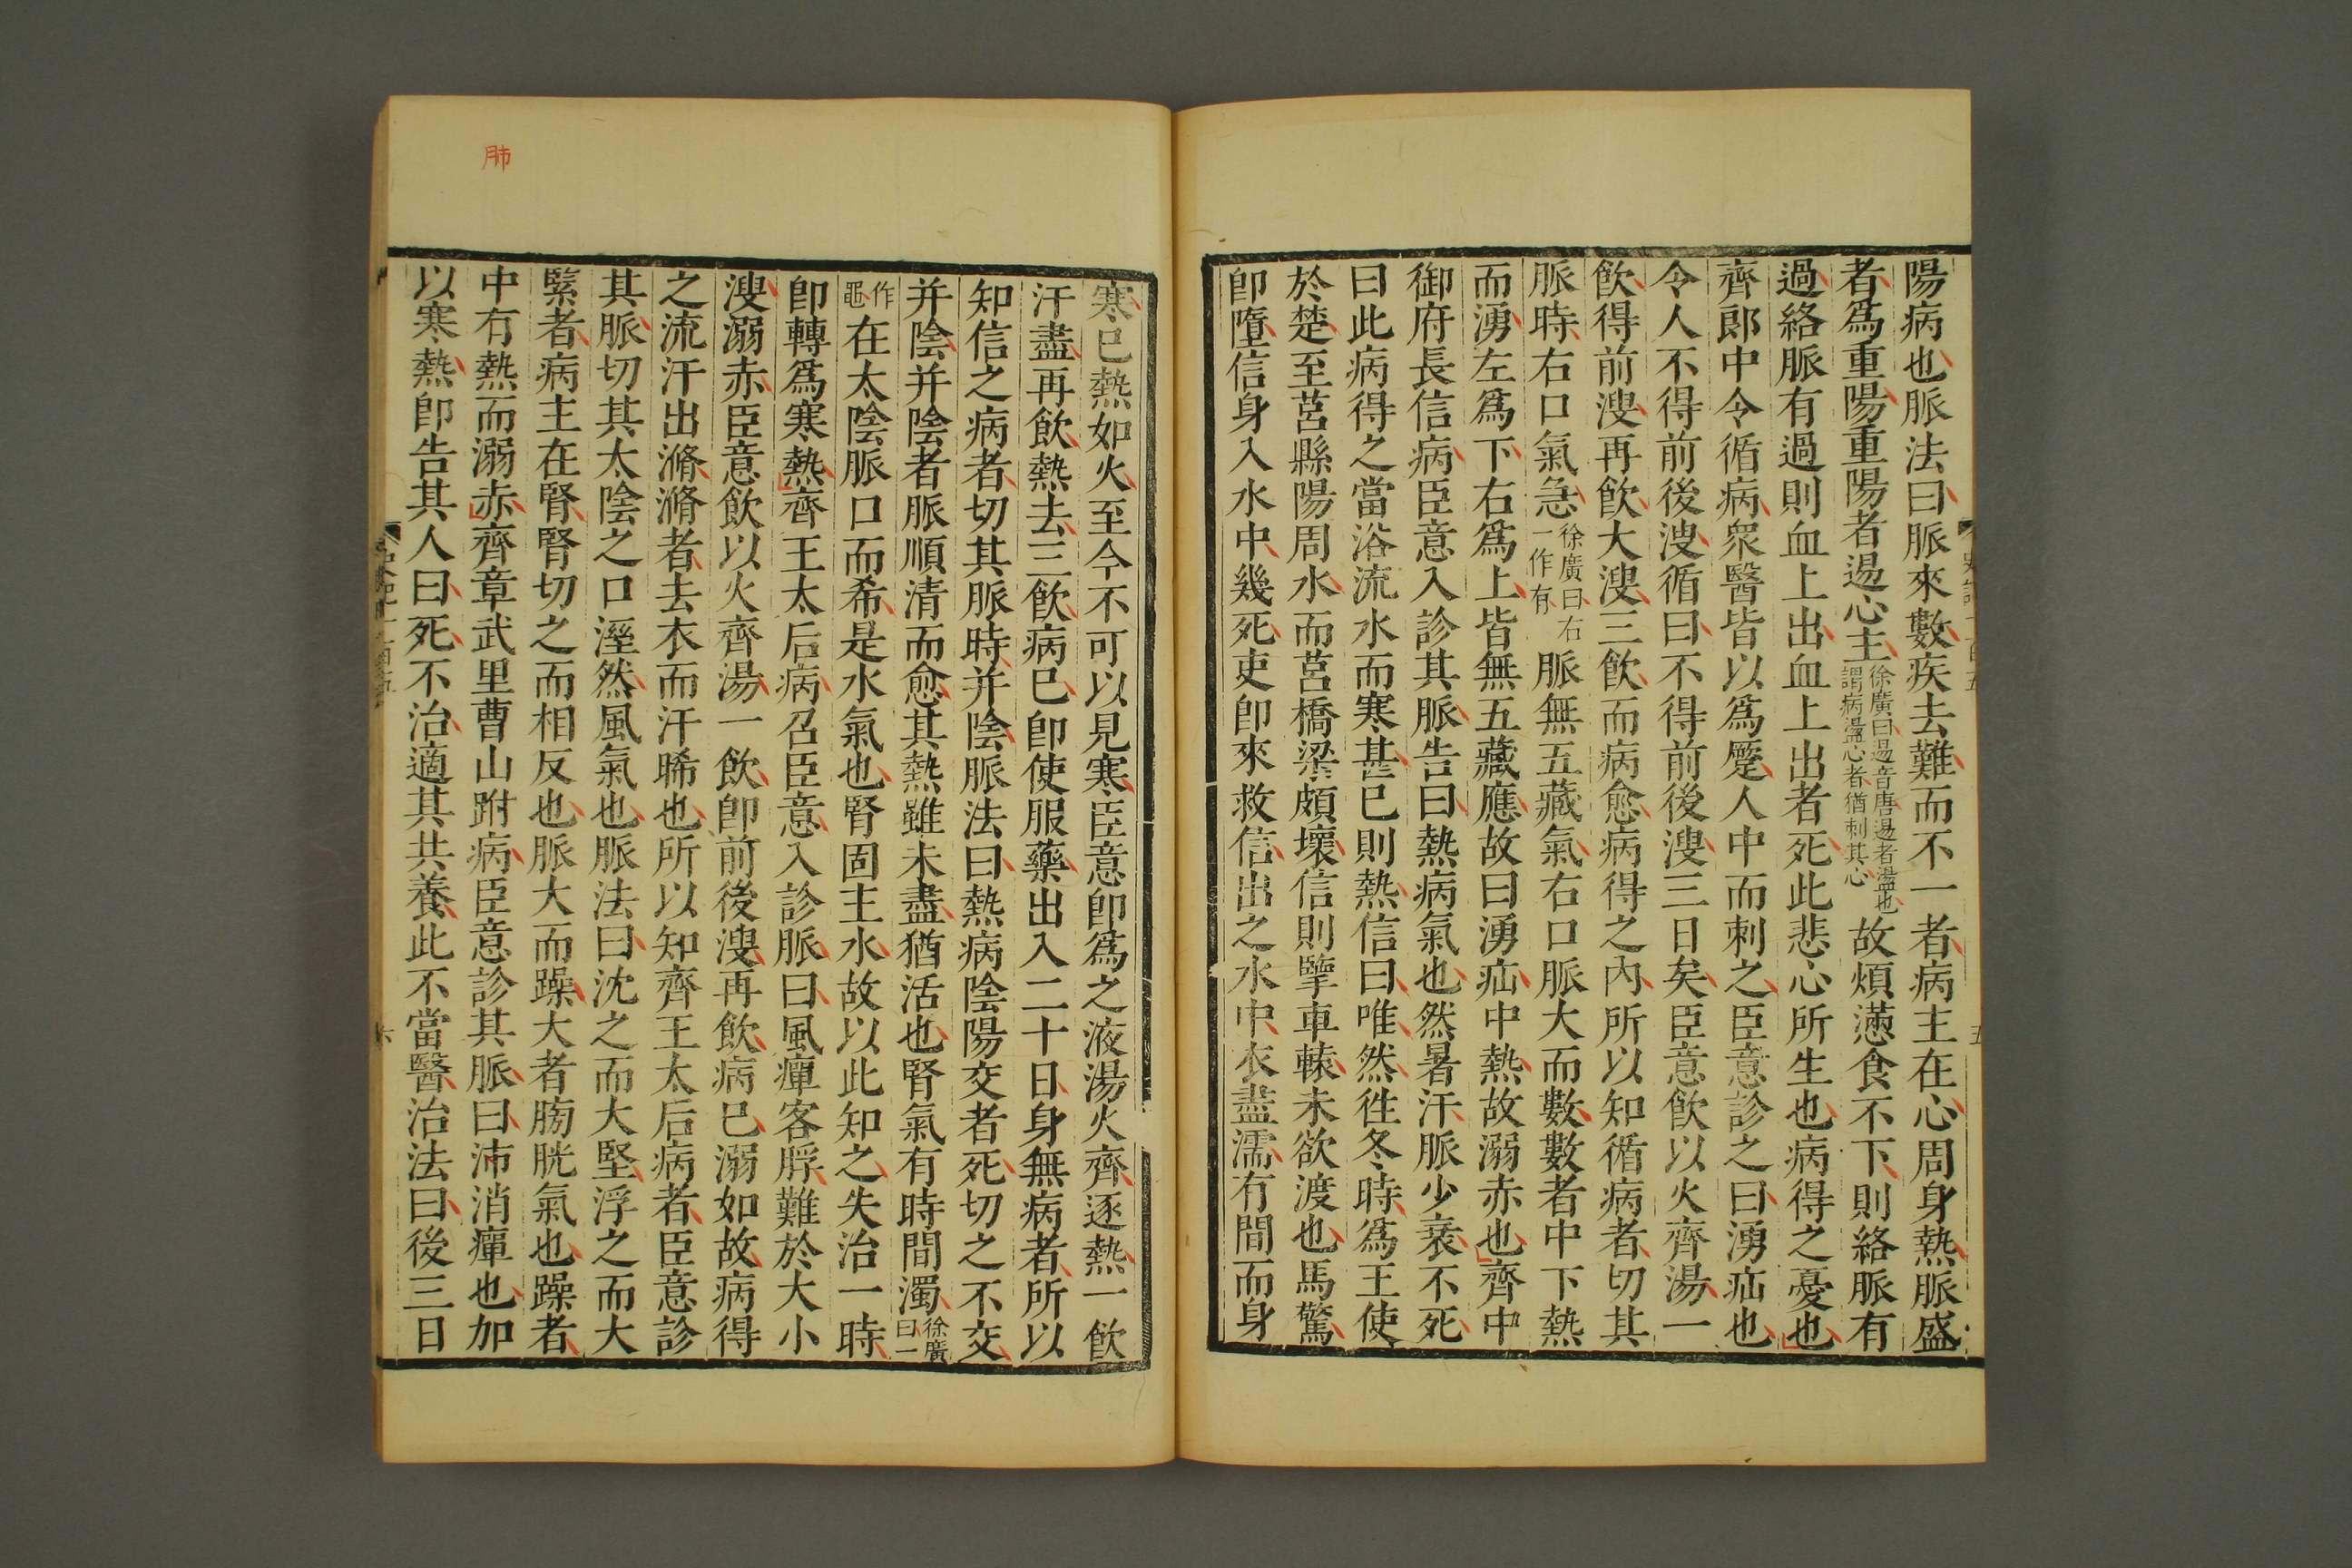 陽病也脈法曰脈來數疾去難而不一者病主在心周身熱脈盛
者爲重陽重陽者逿心主徐廣曰逿音唐逿者盪也謂病盪心者猶刺其心故煩懣食不下則絡脈有
過絡脈有過則血上出血上出者死此悲心所生也病得之憂也
齊郎中令循病衆醫皆以爲蹷人中而刺之臣意診之曰湧疝也
令人不得前後溲循曰不得前後溲三日矣臣意飮以火齊湯一
飮得前溲再飮大溲三飮而病愈病得之內所以知循病者切其
脈時右口氣急徐廣曰右一作有脈無五藏氣右口脈大而數數者中下熱
而湧左爲下右爲上皆無五藏應故曰湧疝中熱故溺赤也齊中
御府長信病臣意入診其脈告曰熱病氣也然暑汗脈少衰不死
曰此病得之當浴流水而寒甚已則熱信曰唯然徃冬時爲王使
於楚至莒縣陽周水而莒橋梁頗壞信則擥車轅未欲渡也馬驚
卽墮信身入水中幾死吏卽來救信出之水中衣盡濡有間而身
寒已熱如火至今不可以見寒臣意卽爲之液湯火齊逐熱一飮
汗盡再飮熱去三飮病已卽使服藥出入二十日身無病者所以
知信之病者切其脈時并陰脈法曰熱病陰陽交者死切之不交
并陰并陰者脈順清而愈其熱雖未盡猶活也腎氣有時間濁徐廣曰一
作黽在太陰脈口而希是水氣也腎固主水故以此知之失治一時
卽轉爲寒熱齊王太后病召臣意入診脈曰風癉客脬難於大小
溲溺赤臣意飮以火齊湯一飮卽前後溲再飮病已溺如故病得
之流汗出滫滫者去衣而汗晞也所以知齊王太后病者臣意診
其脈切其太陰之口溼然風氣也脈法曰沈之而大堅浮之而大
緊者病主在腎腎切之而相反也脈大而躁大者膀胱氣也躁者
中有熱而溺赤齊章武里曹山跗病臣意診其脈曰沛消癉也加
以寒熱卽告其人曰死不治適其共養此不當醫治法曰後三日
肺
六